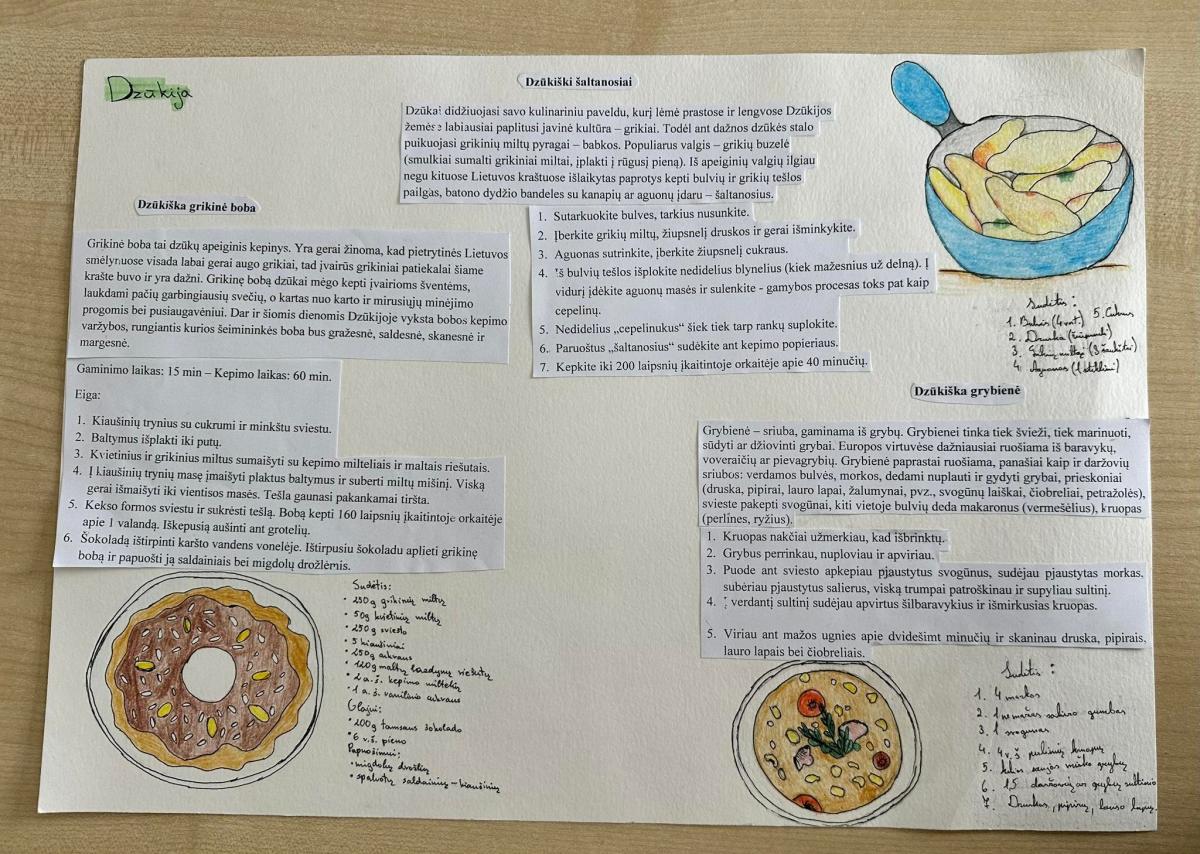 Dzūkija
Dzūkiški šaltanosiai
Dzūkai didžiuojasi savo kulinariniu paveldu, kurį lėmė prastose ir lengvose Dzūkijos
žemėse labiausiai paplitusi javinė kultūra – grikiai. Todėl ant dažnos dzūkės stalo
puikuojasi grikinių miltų pyragai – babkos. Populiarus valgis – grikių buzelė
(smulkiai sumalti grikiniai miltai, įplakti į rūgusį pieną). Iš apeiginių valgių ilgiau
negu kituose Lietuvos kraštuose išlaikytas paprotys kepti bulvių ir grikių tešlos
pailgas, batono dydžio bandeles su kanapių ar aguonų įdaru – šaltanosius.
1. Sutarkuokite bulves, tarkius nusunkite.
2. Įberkite grikių miltų, žiupsnelį druskos ir gerai išminkykite.
3. Aguonas sutrinkite, įberkite žiupsnelį cukraus.
4. Iš bulvių tešlos išplokite nedidelius blynelius (kiek mažesnius už delną). Į
vidurį įdėkite aguonų masės ir sulenkite - gamybos procesas toks pat kaip
cepelinų.
5. Nedidelius „cepelinukus“ šiek tiek tarp rankų suplokite.
6. Paruoštus „šaltanosius“ sudėkite ant kepimo popieriaus.
7. Kepkite iki 200 laipsnių įkaitintoje orkaitėje apie 40 minučių.
Sudėtis:
1. Bulvės (4 vnt.) 5. Cukrus
2. Druska (žiupsnelis)
3. Grikių miltai (3 šaukštai)
4. Aguonos (1 stiklinė)
Dzūkiška grikinė boba
Grikinė boba tai dzūkų apeiginis kepinys. Yra gerai žinoma, kad pietrytinės Lietuvos
smėlynuose visada labai gerai augo grikiai, tad įvairūs grikiniai patiekalai šiame
krašte buvo ir yra dažni. Grikinę bobą dzūkai mėgo kepti įvairioms šventėms,
laukdami pačių garbingiausių svečių, o kartas nuo karto ir mirusiųjų minėjimo
progomis bei pusiaugavėniui. Dar ir šiomis dienomis Dzūkijoje vyksta bobos kepimo
varžybos, rungiantis kurios šeimininkės boba bus gražesnė, saldesnė, skanesnė ir
margesnė.
Gaminimo laikas: 15 min – Kepimo laikas: 60 min.
Eiga:
1. Kiaušinių trynius su cukrumi ir minkštu sviestu.
2. Baltymus išplakti iki putų.
3. Kvietinius ir grikinius miltus sumaišyti su kepimo milteliais ir maltais riešutais.
4. Į kiaušinių trynių masę įmaišyti plaktus baltymus ir suberti miltų mišinį. Viską
gerai išmaišyti iki vientisos masės. Tešla gaunasi pakankamai tiršta.
5. Kekso formos sviestu ir sukrėsti tešlą. Bobą kepti 160 laipsnių įkaitintoje orkaitėje
apie 1 valandą. Iškepusią aušinti ant grotelių.
6. Šokoladą ištirpinti karšto vandens vonelėje. Ištirpusiu šokoladu aplieti grikinę
bobą ir papuošti ją saldainiais bei migdolų drožlėmis.
Sudėtis:
• 250g grikinių miltų
• 50g kvietinių miltų
• 250g sviesto
• 5 kiaušiniai
• 250g cukraus
• 120g maltų lazdynų riešutų
• 2 a.š. kepimo miltelių
• 1 a.š. vanilinio cukraus
Glajui:
• 200g tamsaus šokolado
• 6 v.š. pieno
Papuošimui:
• migdolų drožlių
• spalvotų saldainių – kiaušinių
Dzūkiška grybienė
Grybienė – sriuba, gaminama iš grybų. Grybienei tinka tiek švieži, tiek marinuoti,
sūdyti ar džiovinti grybai. Europos virtuvėse dažniausiai ruošiama iš baravykų,
voveraičių ar pievagrybių. Grybienė paprastai ruošiama, panašiai kaip ir daržovių
sriubos: verdamos bulvės, morkos, dedami nuplauti ir gydyti grybai, prieskoniai
(druska, pipirai, lauro lapai, žalumynai, pvz., svogūnų laiškai, čiobreliai, petražolės),
svieste pakepti svogūnai, kiti vietoje bulvių deda makaronus (vermešėlius), kruopas
(perlines, ryžius).
1. Kruopas nakčiai užmerkiau, kad išbrinktų.
2. Grybus perrinkau, nuploviau ir apviriau.
3. Puode ant sviesto apkepiau pjaustytus svogūnus, sudėjau pjaustytas morkas,
subėriau pjaustytus salierus, viską trumpai patroškinau ir supyliau sultinį.
4. Į verdantį sultinį sudėjau apvirtus šilbaravykius ir išmirkusias kruopas.
5. Viriau ant mažos ugnies apie dvidešimt minučių ir skaninau druska, pipirais,
lauro lapais bei čiobreliais.
Sudėtis:
1. 4 morkos
2. 1 nemažas saliero gumbas
3. 1 svogūnas
4. 4 v.š. perlinių kruopų
5. saujos miško grybų
6. 1,5 daržovių ar grybų sultinio
7. Druskos, pipirų, lauro lapų